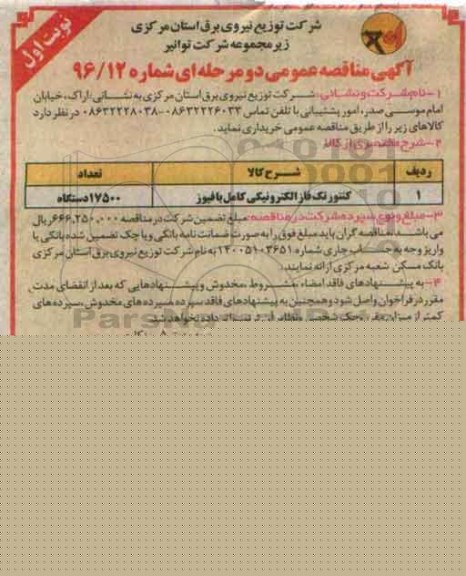 نوبت اول
شرکت توزیع نیروی برق استان مرکزی
زیر مجموعه شرکت توانیر
آگهی مناقصه عمومی دو مرحله ای شماره ۹۶/۱۲
۱-نام شرکت و نشانی: شرکت توزیع نیروی برق استان مرکزی به نشانی: اراک، خیابان
امام موسی صدر، امور پشتیبانی با تلفن تماس ۰۸۶۳۲۲۲۶۰۳۲-۰۸۶۳۲۲۲۸۰۳۸ در نظر دارد
کالاهای زیر را از طریق مناقصه عمومی خریداری نماید.
۲-شرح مختصری از کالا:
ردیف شرح کالا تعداد
۱ کنتور تک فاز الکترونیکی کامل با فیوز ۱۷۵۰۰ دستگاه
۳-مبلغ و نوع سپرده شرکت در مناقصه: مبلغ تضمین شرکت در مناقصه ۶۶۶,۲۵۰,۰۰۰ ریال
می باشد. مناقصه گران باید مبلغ فوق را به صورت ضمانت نامه بانکی و یا چک تضمین شده بانکی یا
واریز وجه به حساب جاری شماره ۱۴۰۰۵۱۰۳۶۵۱ به نام شرکت توزیع نیروی برق استان مرکزی
بانک مسکن شعبه مرکزی ارائه نمایند.
۴-به پیشنهادهای فاقد امضاء، مشروط، مخدوش و پیشنهادهایی که بعد از انقضای مدت
مقرر در فراخوان واصل شود و همچنین به پیشنهادهای فاقد سپرده مسپرده های مخدوش، سپرده های
کمتر از میزان مقرر، چک شخصی و نظایر آن ترتیب اثر داده نخواهد شد.